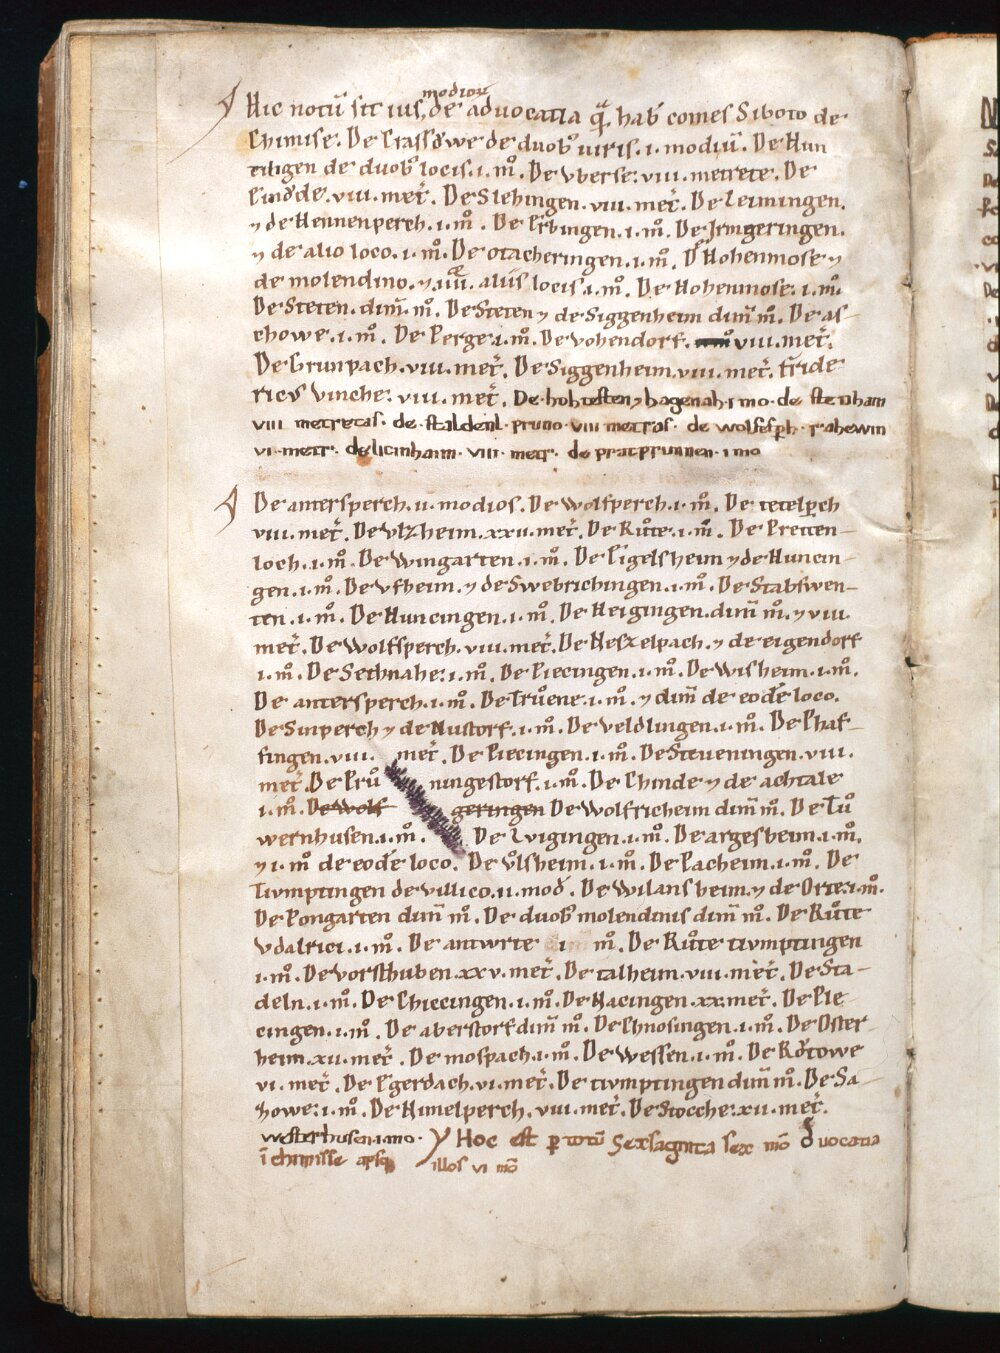 modiorū
Hic notū sit ius, de advocatia q̄ habˀ comes Siboto de
Chimise. De Crassowe de duobˀ viris. i. modiū. De Hun
tingen de duobˀ locis. i. m̊. De Vberse. viii. metrete. De
viii. metˀ. De Slehingen. viii. metˀ. De Leiningen.
⁊ de Hennenperch. i. m̊. De Erbingen. i. m̊. De Irmgeringen.
⁊ de alio loco. i. m̊. De otacheringen. i. m̊. D Hohenmose ⁊
de molendino. ⁊ aliis locis. i. m̊. De Hohenmose. i. m̊.
De Steten. dim̄. m̊. De Steten ⁊ de Siggenheim dim̄ m̊. De as-
chowe. i. m̊. De Perge. i. m̊. De Vohendorf. viii. metˀ.
De Grunpach. viii. metˀ. De Siggenheim. viii. metˀ. fride
ricus Vinche. viii. metˀ. De hohtesten ⁊ hagenah. i mo. de steinham
viii metretas. de pruno. viii metras. de wolfesph. rahewin
vi. metr. de licinhaim. viii. metr. de pratprunnen. i mo
De antersperch. ii. modios. De Wolfperch. i. m̊. De tetelpch
viii. metˀ. De Vlzheim. xxii. metˀ. De Růte. i. m̊. De Pretten-
loch. i. m̊. De Wingarten. i. m̊. De Pigelsheim ⁊ de Huncin-
gen. i. m̊. De Vfheim. ⁊ de Swebrichingen. i. m̊. De Stabswen-
ten. i. m̊. De Huncingen. i. m̊. De Heigingen. dim̄ m̊. ⁊ viii.
metˀ. De Wolfsperch. viii. metˀ. De Heszelpach. ⁊ de eigendorf
i. m̊. De Sechnahe. i. m̊. De Piecingen. i. m̊. De Wisheim. i. m̊.
De antersperch. i. m̊. De Trůene. i. m̊. ⁊ dim̄ de eodē loco.
De Sinperch ⁊ de Nustorf. i. m̊. De Veldlingen. i. m̊. De Phaf-
fingen. viii. metˀ. De Piecingen. i. m̊. De Steveningen. viii.
metˀ. De Prů ningestorf. i. m̊. De Chinde ⁊ de achtale
i. m̊. De Wolf geringen De Wolfricheim dim̄ m̊. De Tů
wernhusen. i. m̊. De Lvigingen. i. m̊. De argesheim. i. m̊.
⁊ i. m̊ de eodē loco. De Vͦlsheim. i. m̊. De Pacheim. i. m̊. De
Tivmptingen de villico. ii. mod. De Wilansheim. ⁊ de Orte. i. m̊.
De Pongarten dim̄ m̊. De duobˀ molendinis dim̄ m̊. De Růte
Vdalrici. i. m̊. De antwrte i m̊. De Růte tivmptingen
i. m̊. De Vorsthuben. xxv. metˀ. De talheim. viii. metˀ. De Sta-
deln. i. m̊. De Chiecingen. i. m̊. De Hacingen. xx. metˀ. De Pie-
cingen. i. m̊. De aberstorf dim̄ m̊. De Chnosingen. i. m̊. De Oster-
heim. xii. metˀ. De mospach. i. m̊. De Wessen. i. m̊. De Rötowe
vi. metˀ. De Egerdach. vi. metˀ. De tivmptingen dim̄ m̊. De Sa-
howe. i. m̊. De Himelperch. viii. metˀ. De Stocche. xii. metˀ.
westerhusen. i. mo. Hoc est p totū Sexsaginta sex mō uocatia
ī chimisse illos vi mō